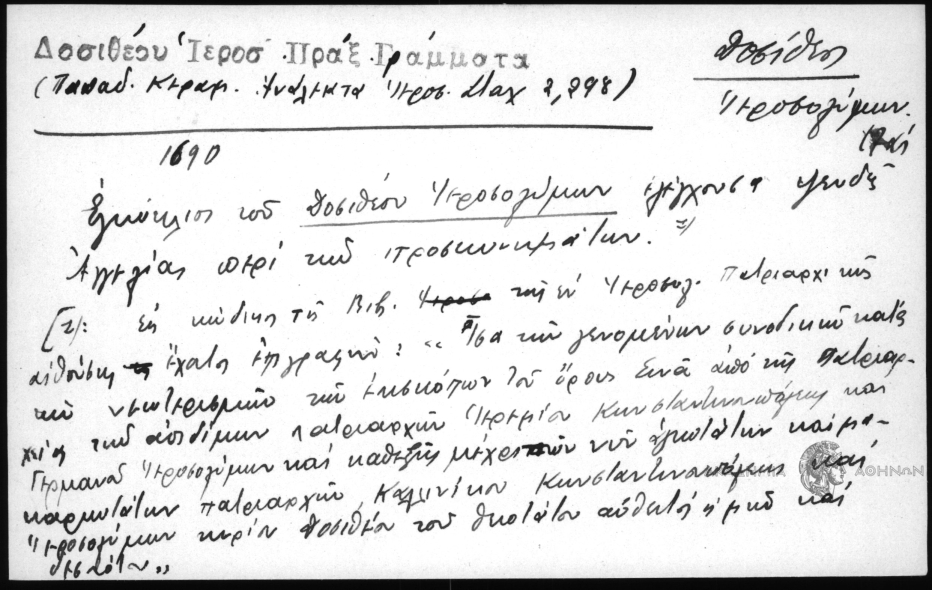 Δοσιθέου Ἱεροσ Πράξ Γράμματα
(Παπαδ. Κεραμ. Ἀνάλεκτα Ἱεροσ. Σταχ 2, 298)
Δοσίθεος
Ἱεροσολύμων
καί
1690
Ἐγκύκλιος τοῦ Δοσιθέου Ἱεροσολύμων ἐλέγχουσα ψευδεῖς
Ἀγγελίας περί τῶν προσκυνημάτων. 2)
[2): Ἐν κώδικι τῆς Βιβ. τῆς ἐν Ἱεροσολ. Πατριαρχικῆς
αἰθούσης ἔχατο ἐπιγραφήν: "Ἴσα τῶν γενομένων συνοδικῶν κατά
τῶν νεωτερισμῶν τῶν ἐπισκόπων τοῦ ὄρους Σινᾶ ἀπό τῆς Πατριαρ-
χείας τῶν ἀοιδίμων πατριαρχῶν Ἱερεμίου Κωνσταντινουπόλεως καί
Γερμανοῦ Ἱεροσολύμων καί καθεξῆς μέχρι τῶν νῦν ἁγιωτάτων καί μα-
καριωτάτων πατριαρχῶν Καλλινίκου Κωνσταντινουπόλεως καί
Ἱεροσολύμων κυρίου Δοσιθέου τοῦ θειοτάτου αὐθεντός ἡμῶν καί
δεσπότου"
ΑΘΗΝΩΝ